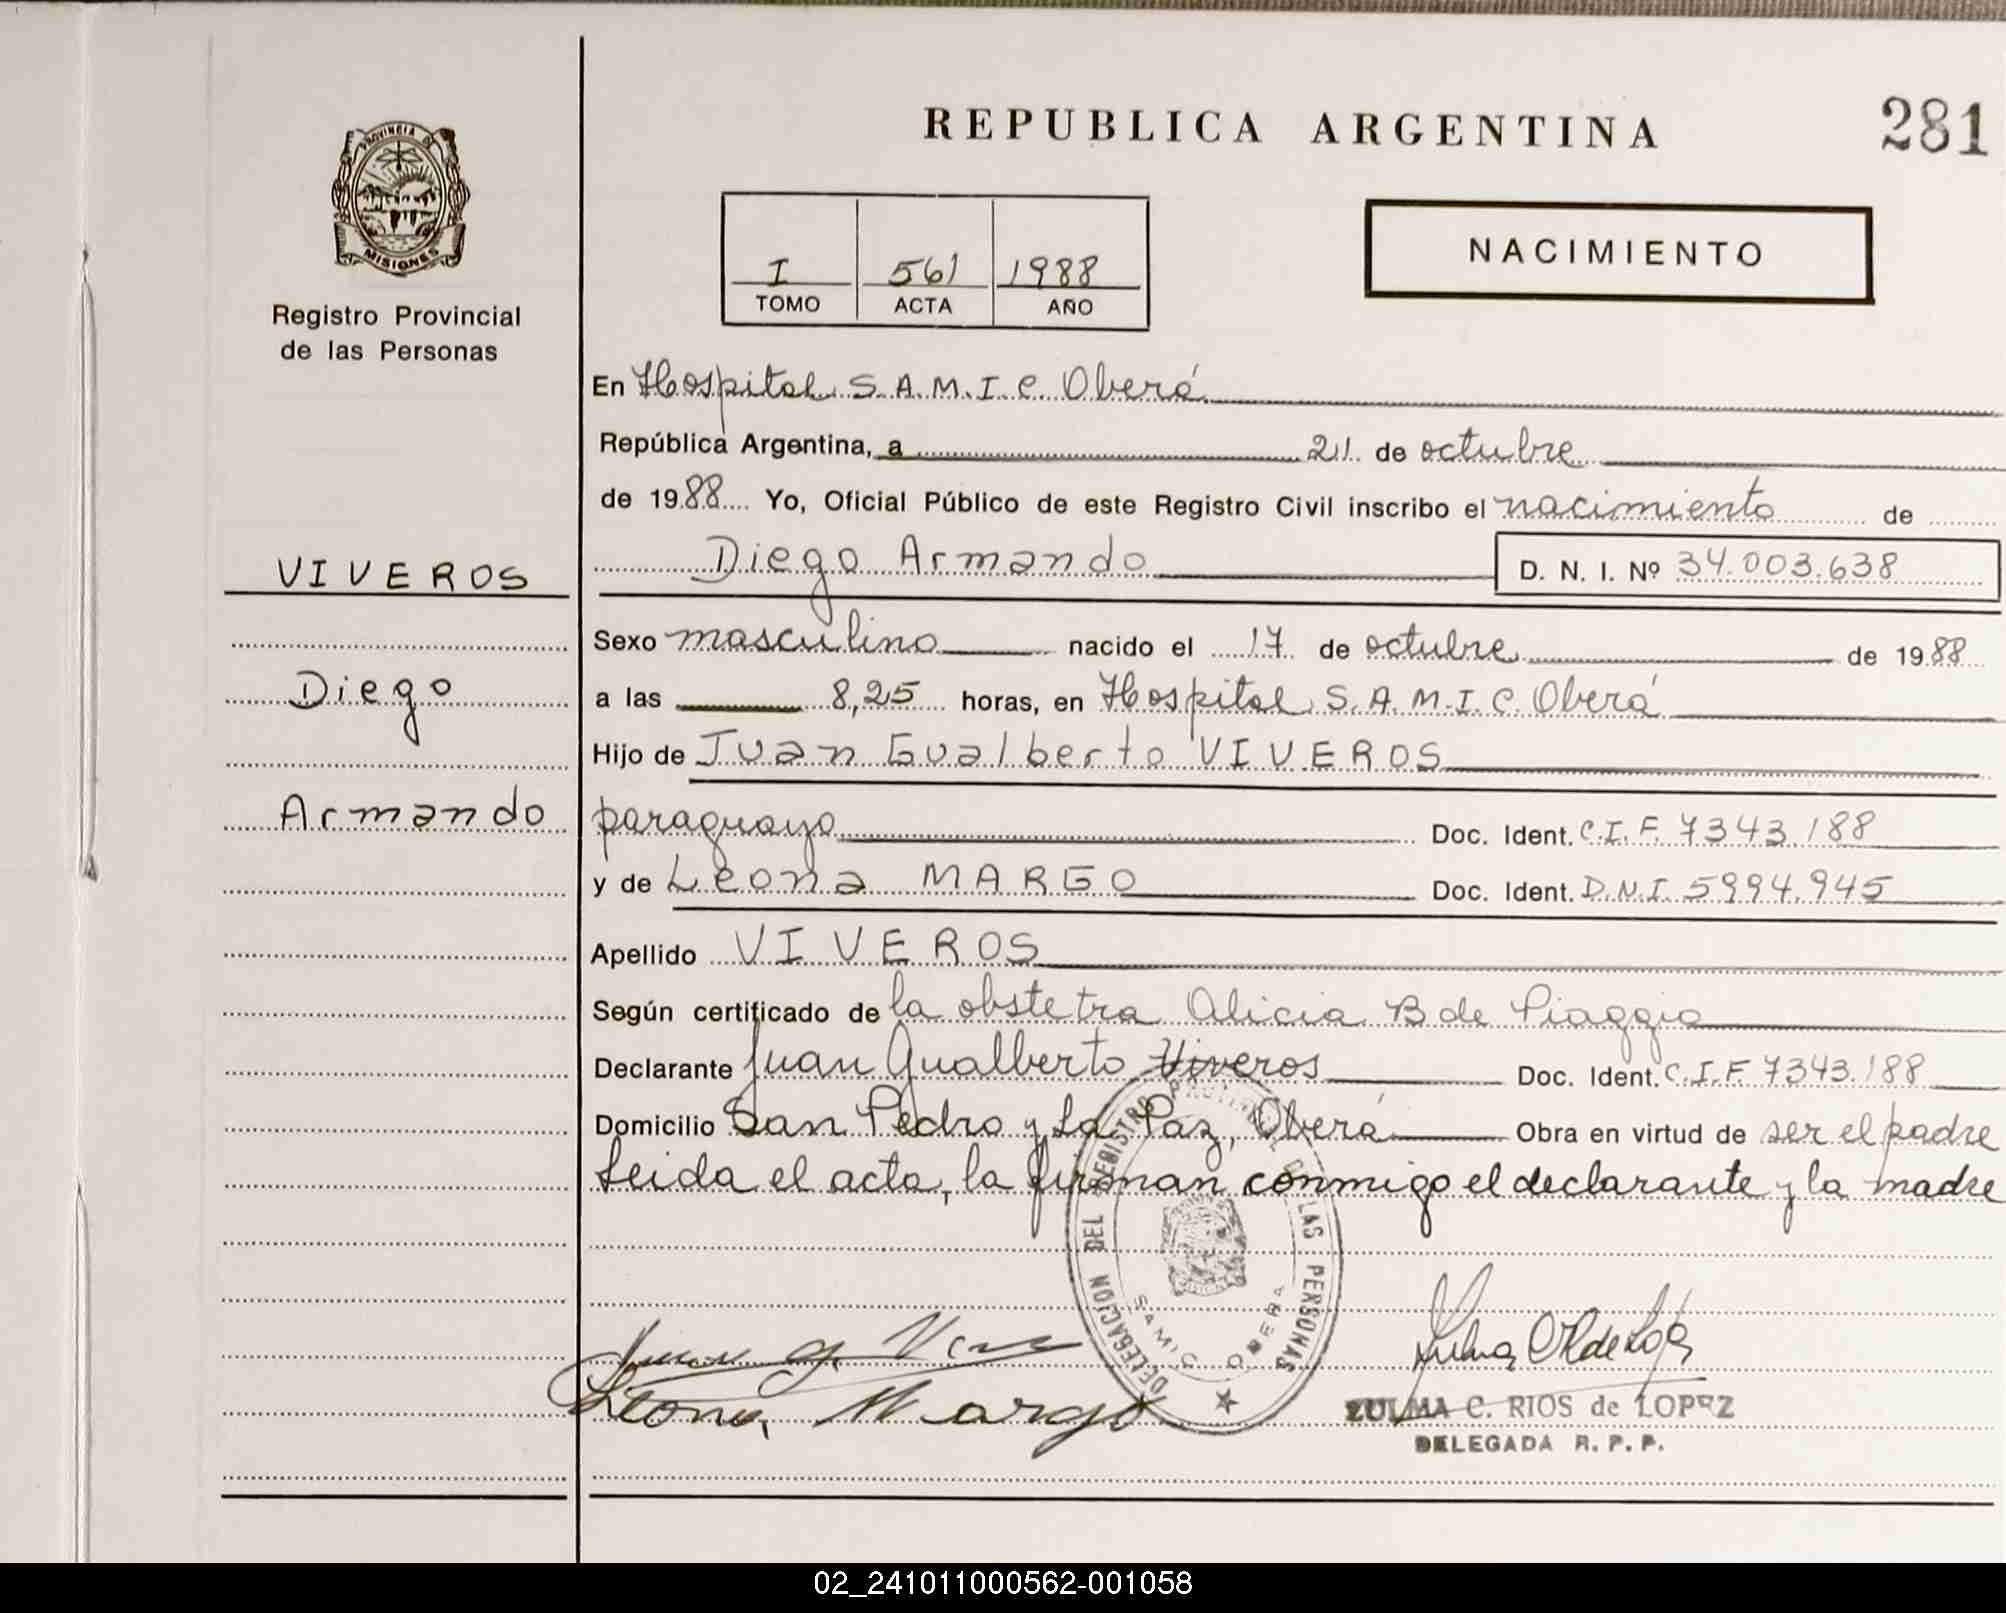 REPUBLICA ARGENTINA
281
PROVINCIA DE
MISIONES
Registro Provincial
de las Personas
I 561 1988
TOMO ACTA AÑO
NACIMIENTO
En Hospital S.A.M.I.C. Oberá
República Argentina, a 21 de octubre
de 1988 Yo, Oficial Público de este Registro Civil inscribo el nacimiento de
Diego Armando D. N. I. Nº 34.003.638
VIVEROS
Diego
Armando
Sexo masculino nacido el 17 de octubre de 1988
a las 8,25 horas, en Hospital S.A.M.I.C. Oberá
Hijo de Juan Gualberto VIVEROS
paraguayo Doc. Ident. C.I.F. 7343.188
y de Leona MARGO Doc. Ident. D.N.I. 5994.945
Apellido VIVEROS
Según certificado de la obstetra Alicia B de Piaggio
Declarante Juan Gualberto Viveros Doc. Ident. C.I.F. 7343.188
Domicilio San Pedro y La Paz, Oberá Obra en virtud de ser el padre
Leida el acta, la firman conmigo el declarante y la madre
DELEGACION DEL REGISTRO PROVINCIAL DE LAS PERSONAS
SAMIC OBERA
Leona Margo
ZULMA C. RIOS de LOPEZ
DELEGADA R. P. P.
02_241011000562-001058